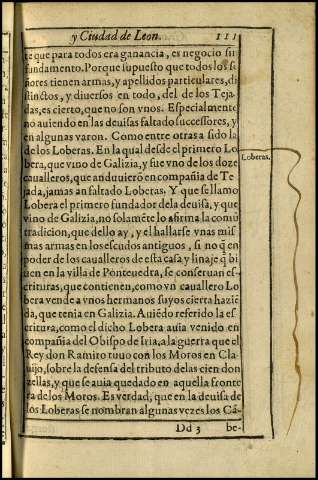 y Ciudad de Leon. 111
te que para todos era ganancia, es negocio sin
fundamento. Porque supuesto que todos los se
ñores tienen armas, y apellidos particulares, di
stinctos, y diuersos en todo, del de los Teja-
das, es cierto, que no son vnos. Especialmente
no auiendo en las deuisas faltado successores, y
en algunas varon. Como entre otras a sido la
de los Loberas. En la qual desde el primero Lo
bera, que vino de Galizia, y fue vno de los doze
caualleros, que anduuierõ en compañia de Te
jada, jamas an faltado Loberas, Y que se llamo
Lobera el primero fundador dela deuisa, y que
vino de Galizia, no solamẽte lo afirma la comũ
tradicion, que dello ay, y el hallarse vnas mis
mas armas en los escudos antiguos, si no q̃ en
poder de los caualleros de esta casa y linaje q̃ bi
uen en la villa de Ponteuedra, se conseruan es-
crituras, que contienen, como vn cauallero Lo
bera vende a vnos hermanos suyos cierta haziẽ
da, que tenia en Galizia. Auiẽdo referido la es
critura, como el dicho Lobera auia venido en
compañia del Obispo de Iria, a la guerra que el
Rey don Ramiro tuuo con los Moros en Cla
uijo, sobre la defensa del tributo de las cien don
zellas, y que se auia quedado en aquella fronte
ra de los Moros. Es verdad, que en la deuisa de
los Loberas se nombran algunas vezes los Cã-
Dd 3 be-
Loberas.